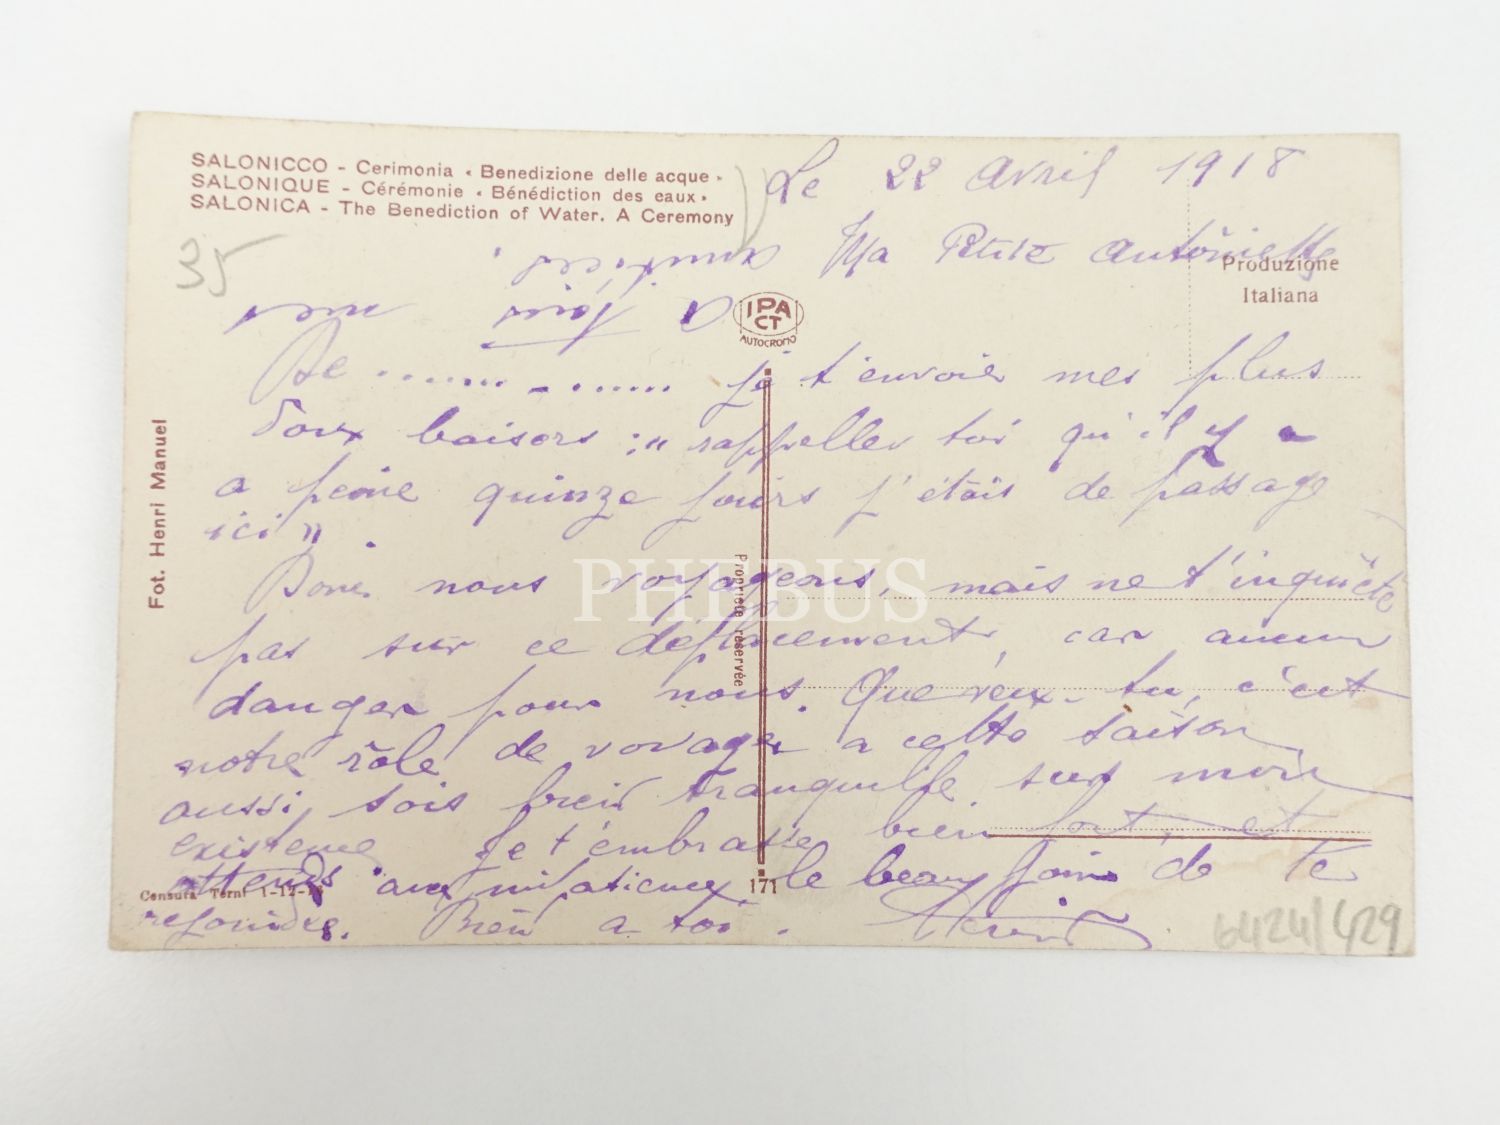 SALONICCO - Cerimonia « Benedizione delle acque »
SALONIQUE - Cérémonie « Bénédiction des eaux »
SALONICA - The Benediction of Water. A Ceremony
35
Le 22 Avril 1918
Ma Petite Antoinette
Produzione
Italiana
amitiés.
A Toi mes
IPA
CT
AUTOCROMO
De ............ je t'envoie mes plus
doux baisers : " rappelles toi qu'il y
a peine quinze jours j'étais de passage
ici ".
Donc nous voyageons, mais ne t'inquiète
pas sur ce déplacement, car aucun
danger pour nous. Que veux-tu, c'est
notre rôle de voyager a cette saison
aussi, sois bien tranquille sur mon
existence Je t'embrasse bien fort, et
attends le beau jour de te
rejoindre. Bien a toi.
Fot. Henri Manuel
Propriété réservée
171
Censura Terni 1-12-17
6424/429
PHEBUS